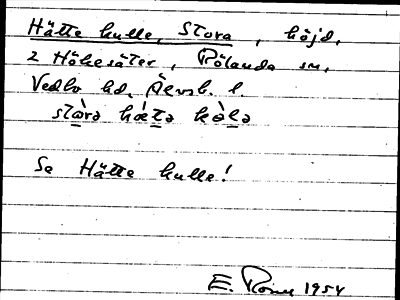 Hätte kulle, Stora, höjd,
2 Hökesäter, Rölanda sn,
Vedbo hd. Älvsb. l.
stɷ̀rə hætə kɷ̀lə
Se Hätte kulle!
E. 1954